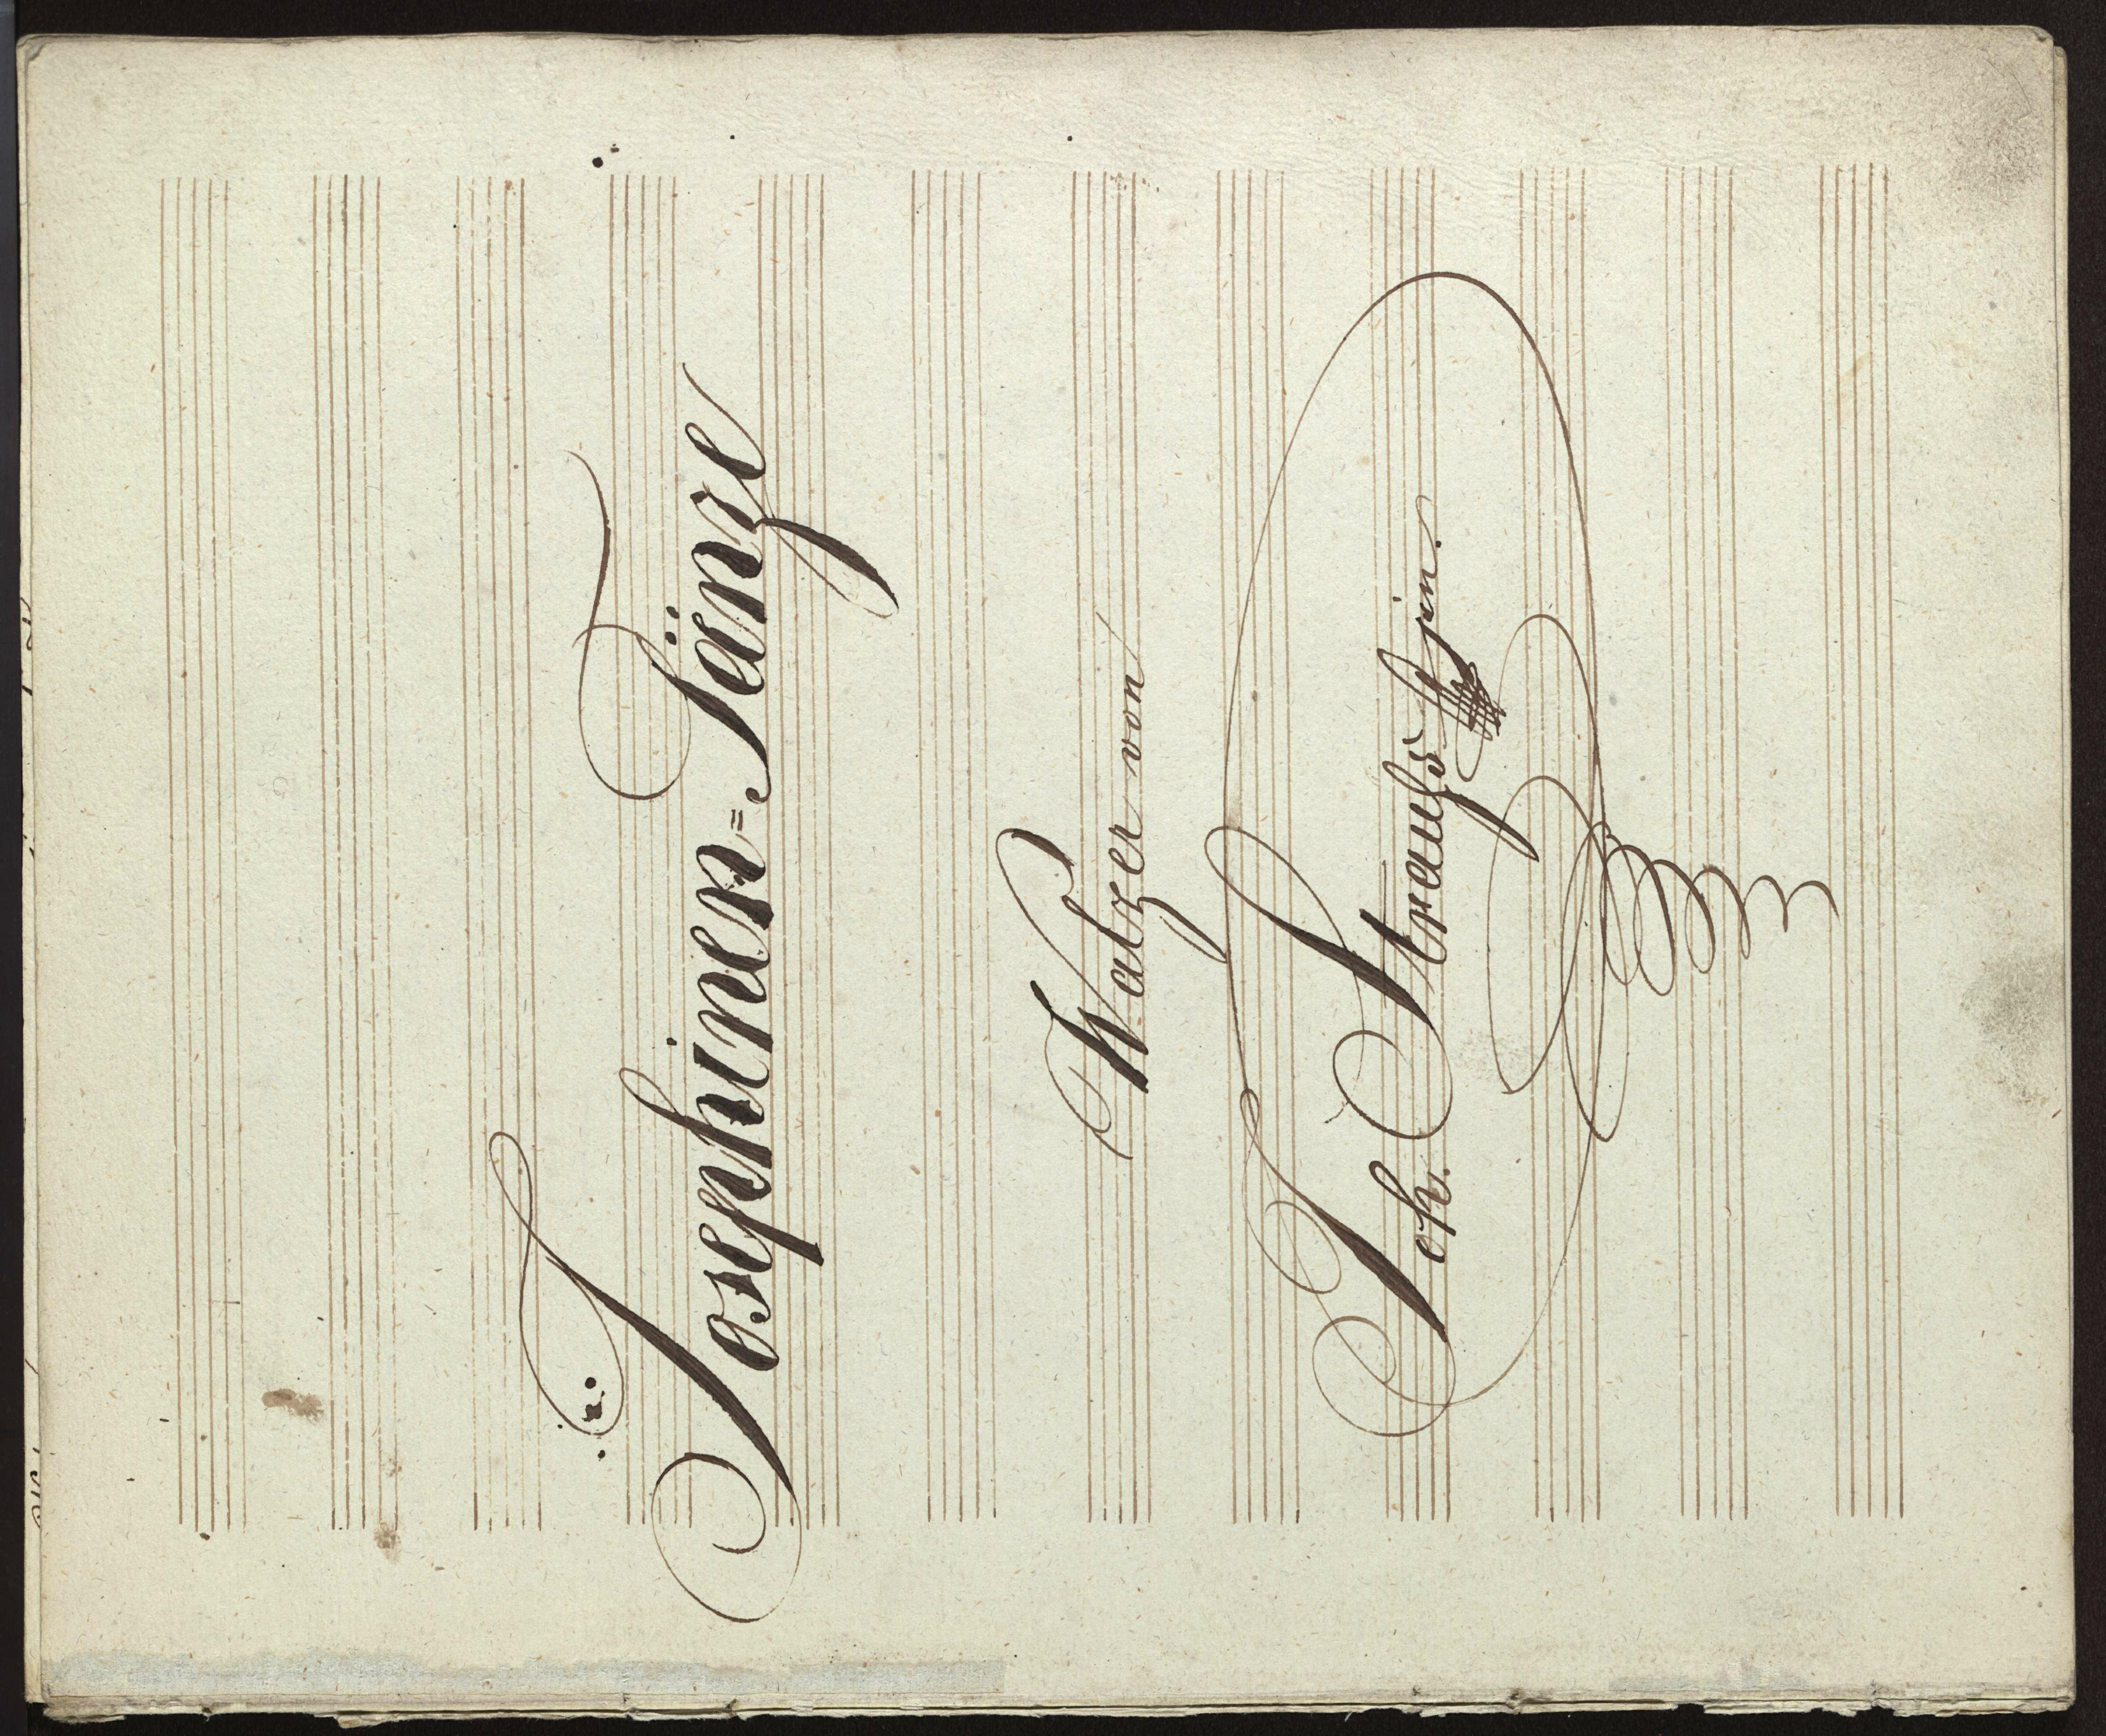 Josephinen=Tänze
Walzer von
Joh. Strauß jun.